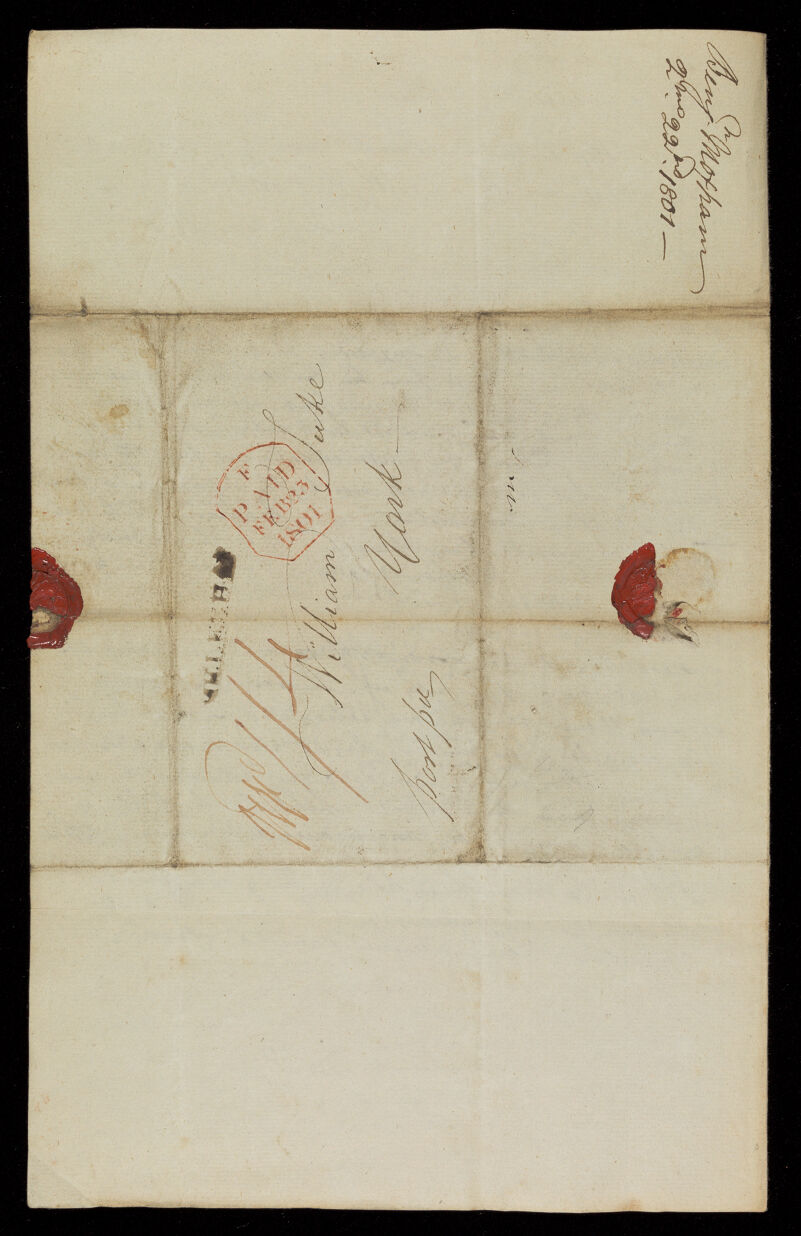 Benjn. Moxham
2mo. 22nd. 1801 —
F
PAID
FEB 23
1801
William Tuke
York —
post pd